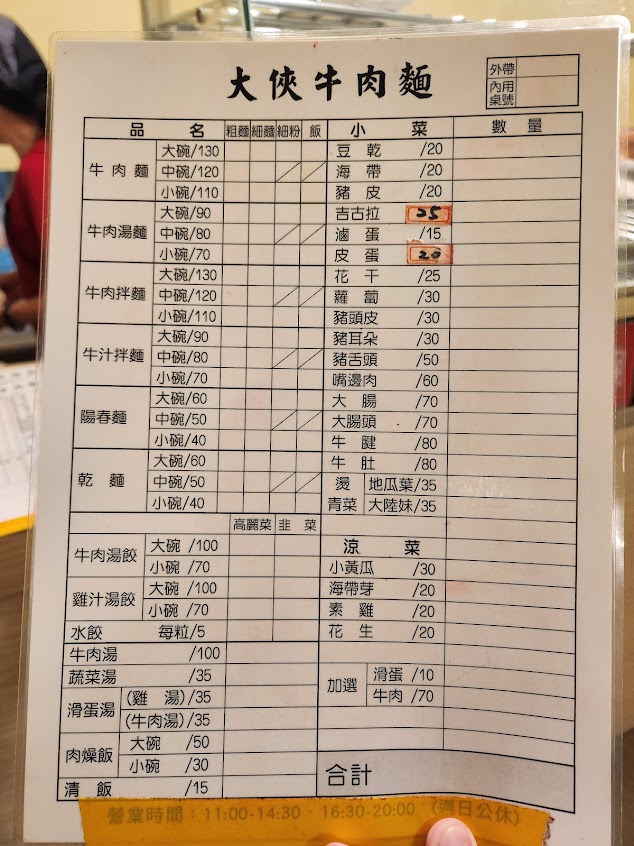 大俠牛肉麵
外帶
內用桌號
品名 粗麵 細麵 細粉 飯 小菜 數量
牛肉麵 大碗/130 豆乾 /20
中碗/120 海帶 /20
小碗/110 豬皮 /20
牛肉湯麵 大碗/90 吉古拉 25
中碗/80 滷蛋 /15
小碗/70 皮蛋 20
牛肉拌麵 大碗/130 花干 /25
中碗/120 蘿蔔 /30
小碗/110 豬頭皮 /30
牛汁拌麵 大碗/90 豬耳朵 /30
中碗/80 豬舌頭 /50
小碗/70 嘴邊肉 /60
陽春麵 大碗/60 大腸 /70
中碗/50 大腸頭 /70
小碗/40 牛腱 /80
乾麵 大碗/60 牛肚 /80
中碗/50 燙青菜 地瓜葉/35
小碗/40 大陸妹/35
高麗菜 韭菜
牛肉湯餃 大碗 /100 涼菜
小碗 /70 小黃瓜 /30
雞汁湯餃 大碗 /100 海帶芽 /20
小碗 /70 素雞 /20
水餃 每粒/5 花生 /20
牛肉湯 /100
蔬菜湯 /35 加選 滑蛋 /10
滑蛋湯 (雞湯)/35 牛肉 /70
(牛肉湯)/35
肉燥飯 大碗 /50
小碗 /30 合計
清飯 /15
營業時間：11:00-14:30．16:30-20:00 (週日公休)